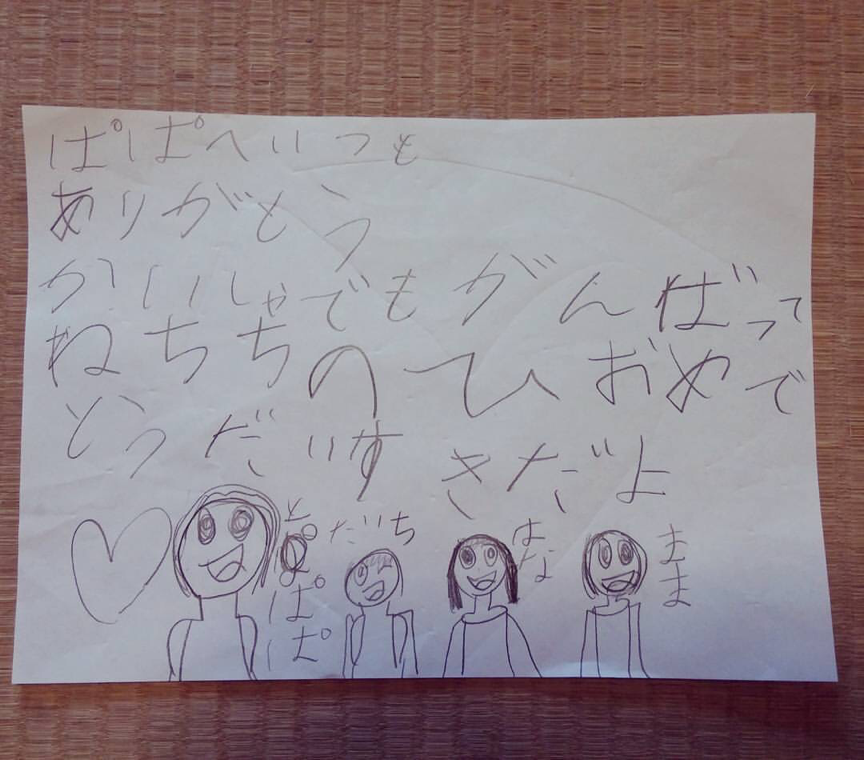 ぱぱへいつも
ありがとう
かいしゃでもがんばって
ねちちのひおめで
とうだいすきだよ
ぱぱ
だいち
はな
まま